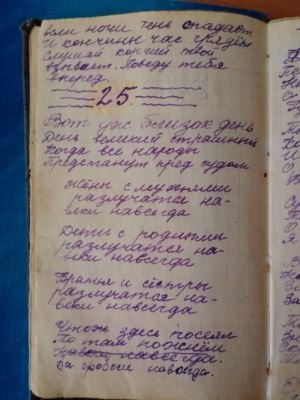 Если ночи тень спадает
И кончины час грядёт
Слушай кормчий твой
взывает. Поведу тебя
вперед.
25
Вот уж близок день
День великий страшный
Когда все народы
Предстанут пред судом
Жёны с мужьями
разлучатся на-
веки навсегда
Дети с родными
разлучатся на-
веки навсегда
Братья и сёстры
разлучатся на-
веки навсегда
здесь посеял
То там пожнём
навсегда.
За гробом навсегда.